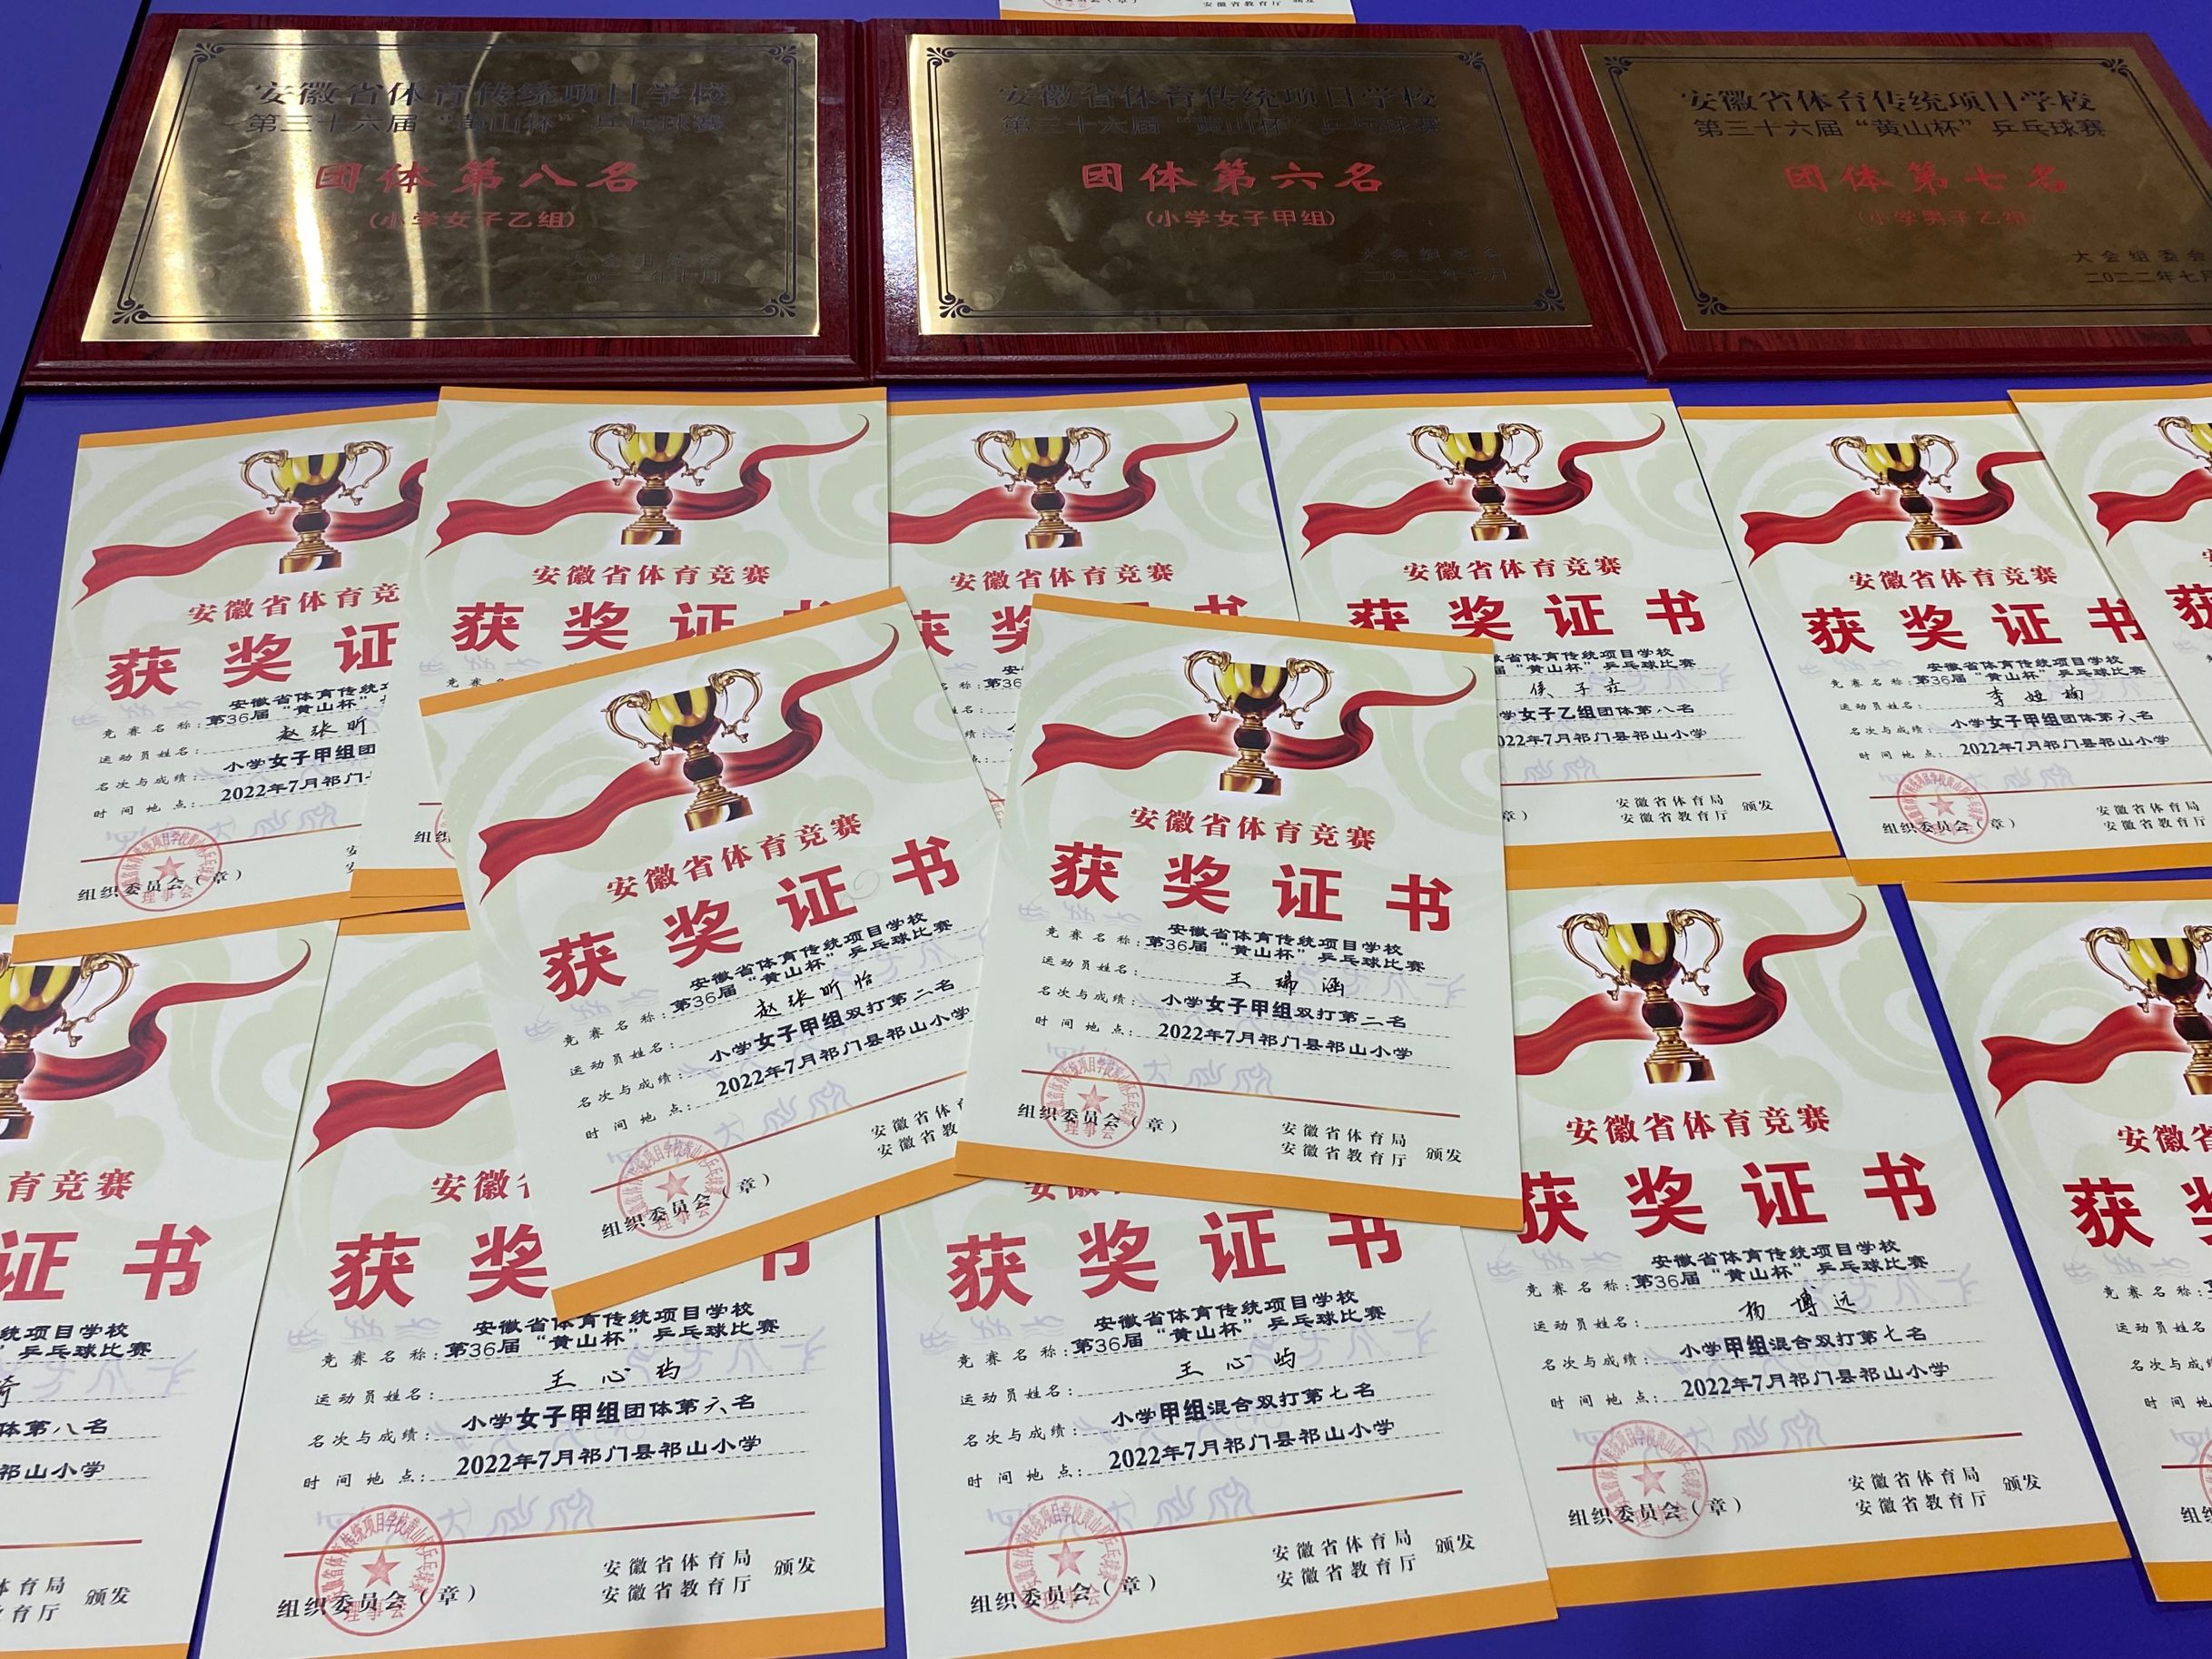 安徽省教育厅 颁发
安徽省体育传统项目学校
第三十六届“黄山杯”乒乓球赛
团体第八名
(小学女子乙组)
安徽省体育传统项目学校
第三十六届“黄山杯”乒乓球赛
团体第六名
(小学女子甲组)
大会组委会
二〇二二年七月
安徽省体育传统项目学校
第三十六届“黄山杯”乒乓球赛
团体第七名
(小学男子乙组)
大会组委会
二〇二二年七月
安徽省体育竞
获奖证
安徽省体育传统项
竞赛名称:第36届“黄山杯”
运动员姓名:赵张昕
名次与成绩:小学女子甲组团
时间地点:2022年7月祁门
组织委员会(章)
安徽省体育竞赛
获奖证书
竞赛
组织
安徽省体育竞赛
获奖 书
第36
安徽省体育竞赛
获奖证书
省体育传统项目学校
届“黄山杯”乒乓球比赛
侯子垚
学女子乙组团体第八名
022年7月祁门县祁山小学
章)
安徽省体育局
安徽省教育厅 颁发
安徽省体育竞赛
获奖证书
安徽省体育传统项目学校
竞赛名称:第36届“黄山杯”乒乓球比赛
运动员姓名:李妞楠
名次与成绩:小学女子甲组团体第六名
时间地点:2022年7月祁门县祁山小学
组织委员会(章)
安徽省体育局
安徽省教育厅
获
安徽省体育竞赛
获奖证书
安徽省体育传统项目学校
竞赛名称:第36届“黄山杯”乒乓球比赛
运动员姓名:赵张昕怡
名次与成绩:小学女子甲组双打第二名
时间地点:2022年7月祁门县祁山小学
组织委员会(章)
安徽省体
安徽省教
安徽省体育竞赛
获奖证书
安徽省体育传统项目学校
竞赛名称:第36届“黄山杯”乒乓球比赛
运动员姓名:王瑞涵
名次与成绩:小学女子甲组双打第二名
时间地点:2022年7月祁门县祁山小学
组织委员会(章)
安徽省体育局
安徽省教育厅 颁发
育竞赛
证书
统项目学校
”乒乓球比赛
体第八名
祁山小学
体育局
教育厅 颁发
安徽省
获奖 书
安徽省体育传统项目学校
竞赛名称:第36届“黄山杯”乒乓球比赛
运动员姓名:王心玙
名次与成绩:小学女子甲组团体第六名
时间地点:2022年7月祁门县祁山小学
组织委员会(章)
安徽省体育局
安徽省教育厅 颁发
安徽
获奖证书
安徽省体育传统项目学校
竞赛名称:第36届“黄山杯”乒乓球比赛
运动员姓名:王心屿
名次与成绩:小学甲组混合双打第七名
时间地点:2022年7月祁门县祁山小学
组织委员会(章)
安徽省体育局
安徽省教育厅 颁发
安徽省体育竞赛
获奖证书
安徽省体育传统项目学校
竞赛名称:第36届“黄山杯”乒乓球比赛
运动员姓名:杨博远
名次与成绩:小学甲组混合双打第七名
时间地点:2022年7月祁门县祁山小学
组织委员会(章)
安徽省体育局
安徽省教育厅 颁发
安徽省
获奖
竞赛名称:
运动员姓名:
名次与成绩:
时间地
组织